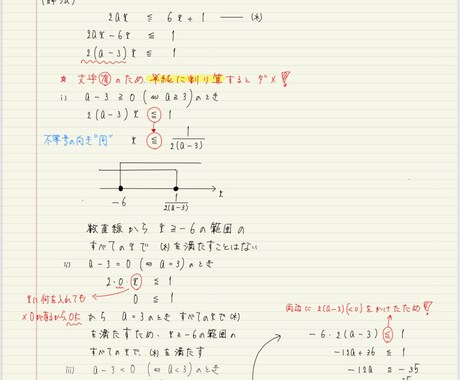 2ax ≦ 6x + 1 ——(*)
2ax - 6x ≦ 1
2(a-3)x ≦ 1
* 文字 のため 単純に割り算すると ダメ!
i) a-3 ≧ 0 (⇔ a ≧ 3) のとき
2(a-3)x ≦ 1
不等号の向き"同" x ≦ 1/2(a-3)
-6 1/2(a-3) x
数直線から x ≧ -6 の範囲の
すべてのxで (*)を満たすことはない
ii) a-3 = 0 (⇔ a = 3) のとき
2・0・x ≦ 1
xに何を入れても 0 ≦ 1
×0 だからOK から a = 3 のとき すべてのxで(*)
を満たすため、x ≧ -6 の範囲の
すべてのxで (*)を満たす
iii) a-3 < 0 (⇔ a < 3) のとき
両辺に 2(a-3)(<0)をかけたため!
-6・2(a-3) ≦ 1
-12a + 36 ≦ 1
-12a ≦ -35